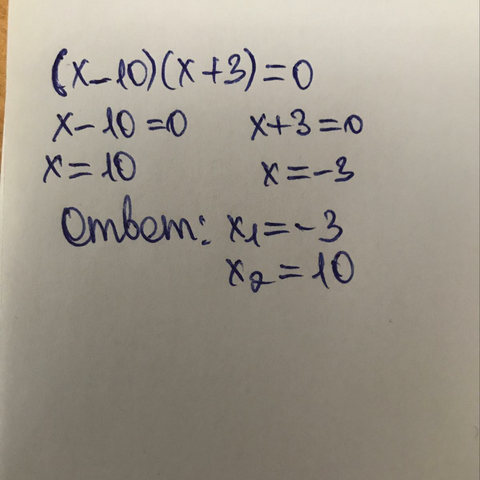 (x-10)(x+3)=0
x-10=0 x+3=0
x=10 x=-3
Ответ: x₁=-3
x₂=10